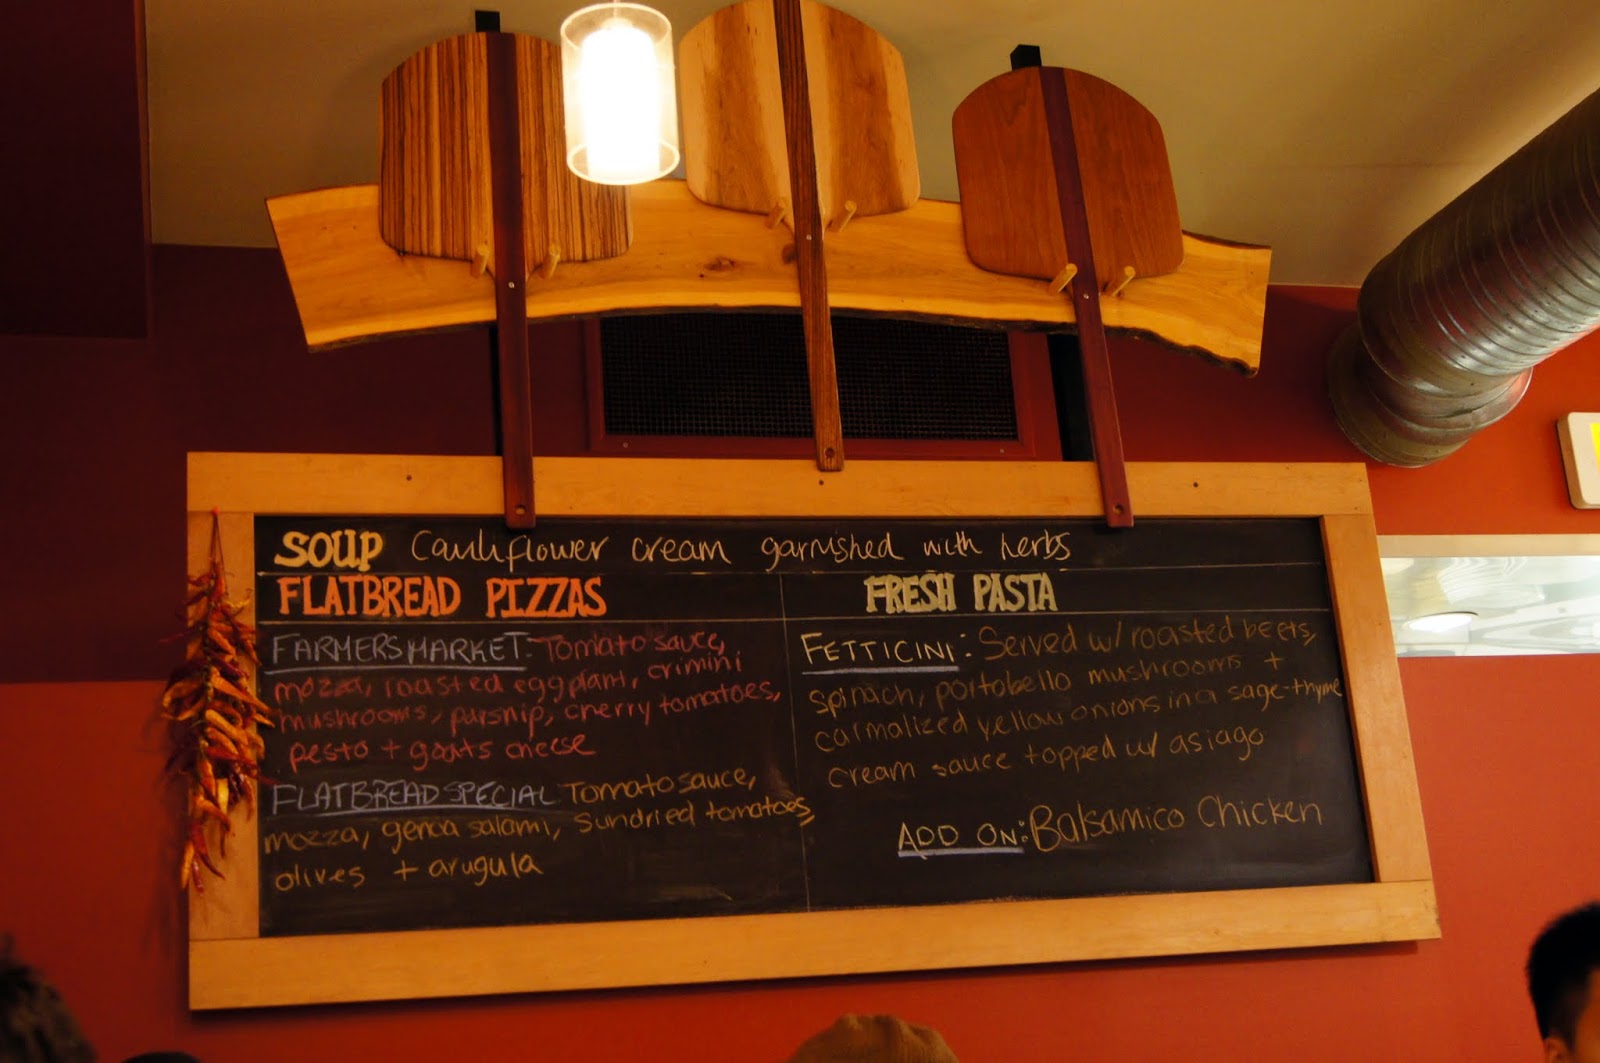 SOUP Cauliflower cream garnished with herbs
FLATBREAD PIZZAS
FARMERS MARKET: Tomato sauce,
mozza, roasted eggplant, crimini
mushrooms, parsnip, cherry tomatoes,
pesto + goats cheese
FLATBREAD SPECIAL Tomato sauce,
mozza, genoa salami, sundried tomatoes,
olives + arugula
FRESH PASTA
FETTICINI: Served w/ roasted beets,
spinach, portobello mushrooms +
carmalized yellow onions in a sage-thyme
cream sauce topped w/ asiago
ADD ON: Balsamico Chicken